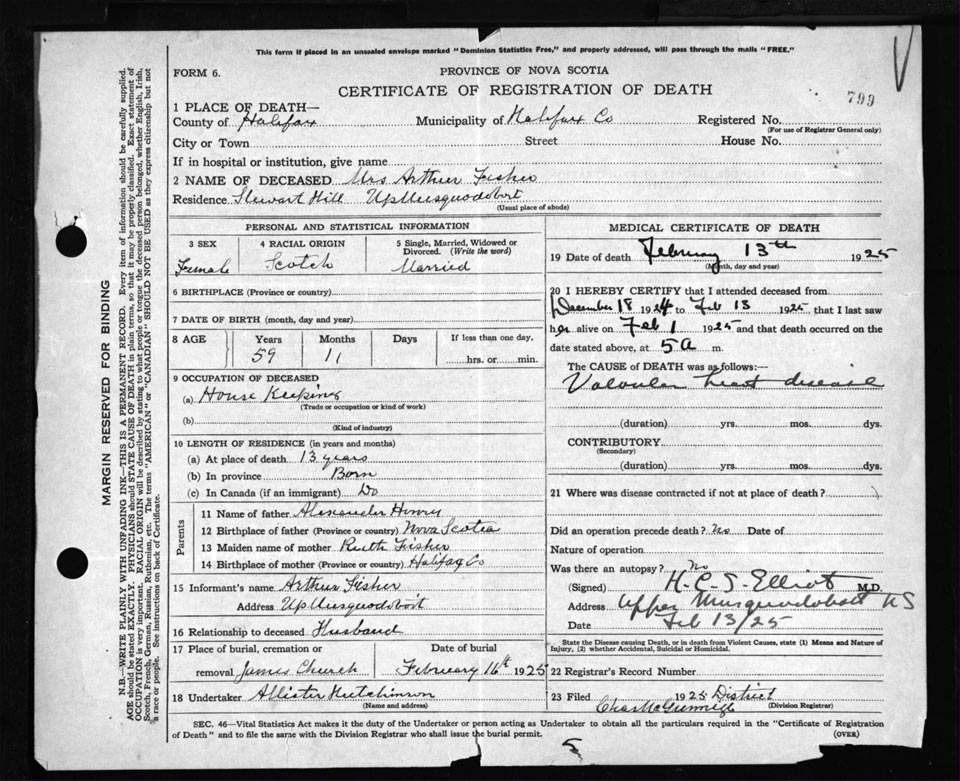 This form if placed in an unsealed envelope marked "Dominion Statistics Free," and properly addressed, will pass through the mails "FREE."
FORM 6.
PROVINCE OF NOVA SCOTIA
CERTIFICATE OF REGISTRATION OF DEATH
799
1 PLACE OF DEATH—
County of Halifax Municipality of Halifax Co Registered No.
(For use of Registrar General only)
City or Town Street House No.
If in hospital or institution, give name
2 NAME OF DECEASED Mrs Arthur Fisher
Residence Stewart Hill Up Musquodoboit
(Usual place of abode)
PERSONAL AND STATISTICAL INFORMATION
3 SEX 4 RACIAL ORIGIN 5 Single, Married, Widowed or Divorced. (Write the word)
Female Scotch Married
6 BIRTHPLACE (Province or country)
7 DATE OF BIRTH (month, day and year)
8 AGE Years Months Days If less than one day,
59 11 hrs. or min.
9 OCCUPATION OF DECEASED
(a) House Keeping
(Trade or occupation or kind of work)
(b)
(Kind of industry)
10 LENGTH OF RESIDENCE (in years and months)
(a) At place of death 13 years
(b) In province Born
(c) In Canada (if an immigrant) Do
Parents
11 Name of father Alexander Henry
12 Birthplace of father (Province or country) Nova Scotia
13 Maiden name of mother Ruth Fisher
14 Birthplace of mother (Province or country) Halifax Co
15 Informant's name Arthur Fisher
Address Up Musquodoboit
16 Relationship to deceased Husband
17 Place of burial, cremation or Date of burial
removal James Church February 16th 1925
18 Undertaker Allister Hutchinson
(Name and address)
MEDICAL CERTIFICATE OF DEATH
19 Date of death February 13th 1925
(Month, day and year)
20 I HEREBY CERTIFY that I attended deceased from
December 18 1924 to Feb 13 1925 that I last saw
her alive on Feb 1 1925 and that death occurred on
date stated above, at 5 a m.
The CAUSE OF DEATH was as follows:—
Valvular heart disease
(duration) yrs. mos. dys.
CONTRIBUTORY
(Secondary)
(duration) yrs. mos. dys.
21 Where was disease contracted if not at place of death?
Did an operation precede death? No Date of
Nature of operation
Was there an autopsy? No
(Signed) H. C. S. Elliot M.D.
Address Upper Musquodoboit NS
Date Feb 13/25
State the Disease causing Death, or in death from Violent Causes, state (1) Means and Nature of
Injury, (2) whether Accidental, Suicidal or Homicidal.
22 Registrar's Record Number
23 Filed 1925 District
(Division Registrar)
SEC. 46—Vital Statistics Act makes it the duty of the Undertaker or person acting as Undertaker to obtain all the particulars required in the "Certificate of Registration
of Death" and to file the same with the Division Registrar who shall issue the burial permit.
(OVER)
5
MARGIN RESERVED FOR BINDING
N.B.—WRITE PLAINLY WITH UNFADING INK—THIS IS A PERMANENT RECORD. Every item of information should be carefully supplied.
AGE should be stated EXACTLY. PHYSICIANS should STATE CAUSE OF DEATH in plain terms, so that it may be properly classified. Exact statement of
OCCUPATION is very important. RACIAL ORIGIN will be described by stating to what people or tongue the deceased person belonged, whether English, Irish,
Scotch, French, German, Russian, Ruthenian, etc. The terms "AMERICAN" or "CANADIAN" SHOULD NOT BE USED as they express citizenship but not
a race or people. See instructions on back of Certificate.